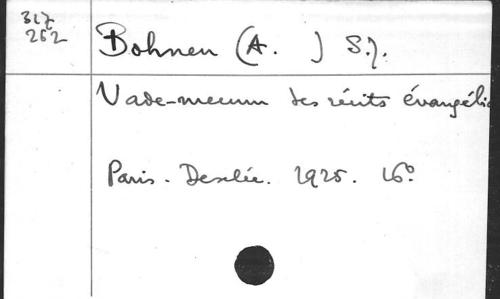 317
262
Bohnen (A. ) S.J.
Vade-mecum des récits évangélic
Paris. Desclée. 1925. 16°